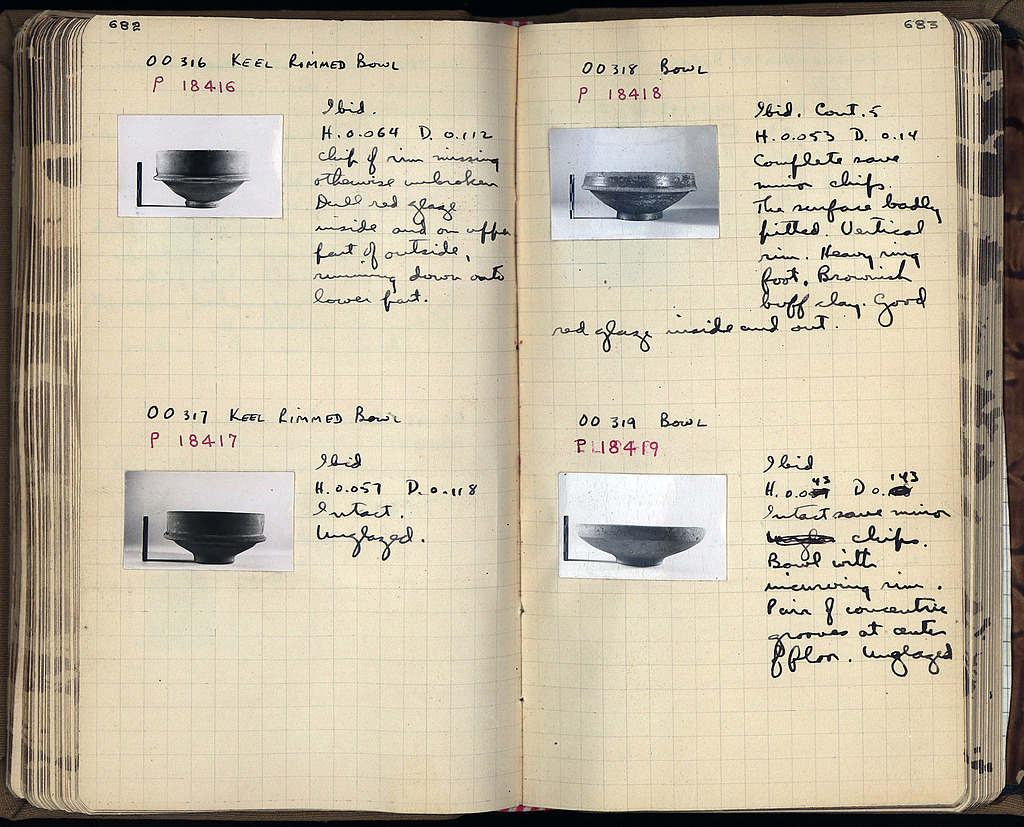 682
OO 316 KEEL RIMMED BOWL
P 18416
Ibid.
H. 0.064 D. 0.112
chip of rim missing
otherwise unbroken
Dull red glaze
inside and on upper
part of outside,
running down onto
lower part.
OO 317 KEEL RIMMED BOWL
P 18417
Ibid
H. 0.057 D. 0.118
Intact.
Unglazed.
683
OO 318 BOWL
P 18418
Ibid. Cont. 5
H. 0.053 D. 0.14
Complete save
minor chips.
The surface badly
pitted. Vertical
rim. Heavy ring
foot. Brownish
buff clay. Good
red glaze inside and out.
OO 319 BOWL
P 18419
Ibid
H. 0.043 D 0.143
Intact save minor
chips.
Bowl with
incurving rim.
Pair of concentric
grooves at center
of floor. Unglazed